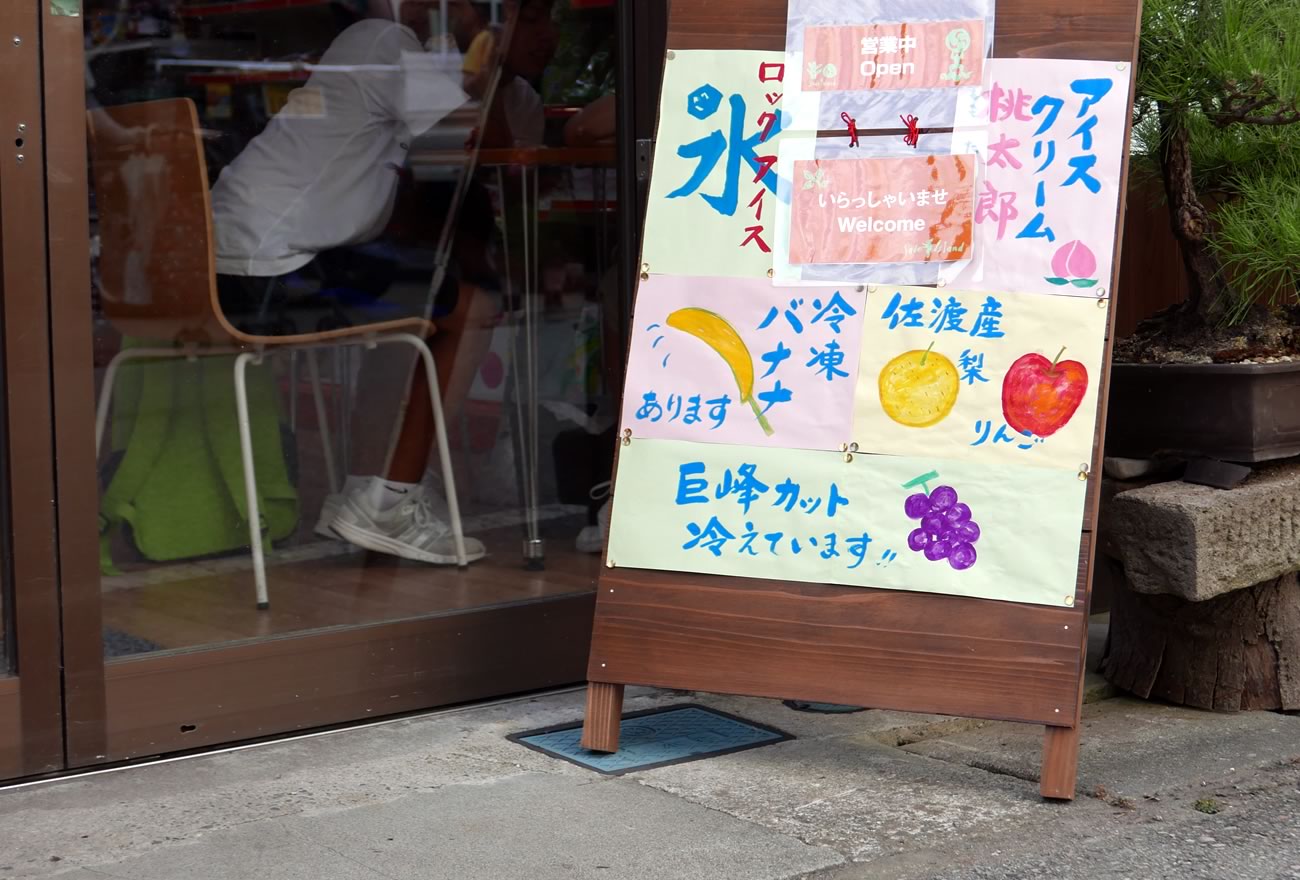 営業中
Open
いらっしゃいませ
Welcome
氷
ロックアイス
アイス
クリーム
桃太郎
冷凍
バナナ
あります
佐渡産
梨
りんご
巨峰カット
冷えています!!